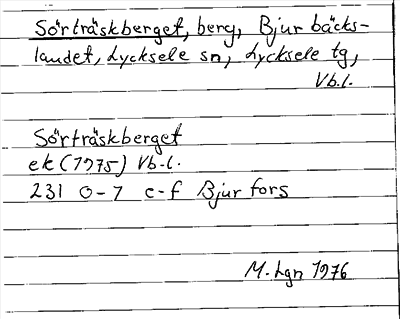 Sörträskberget, berg, Bjurbäcks-
landet, Lycksele sn, Lycksele tg,
Vb.l.
Sörträskberget
ek (1975) Vb.l.
231 0-7 c-f Bjurfors
M. Lgn 1976